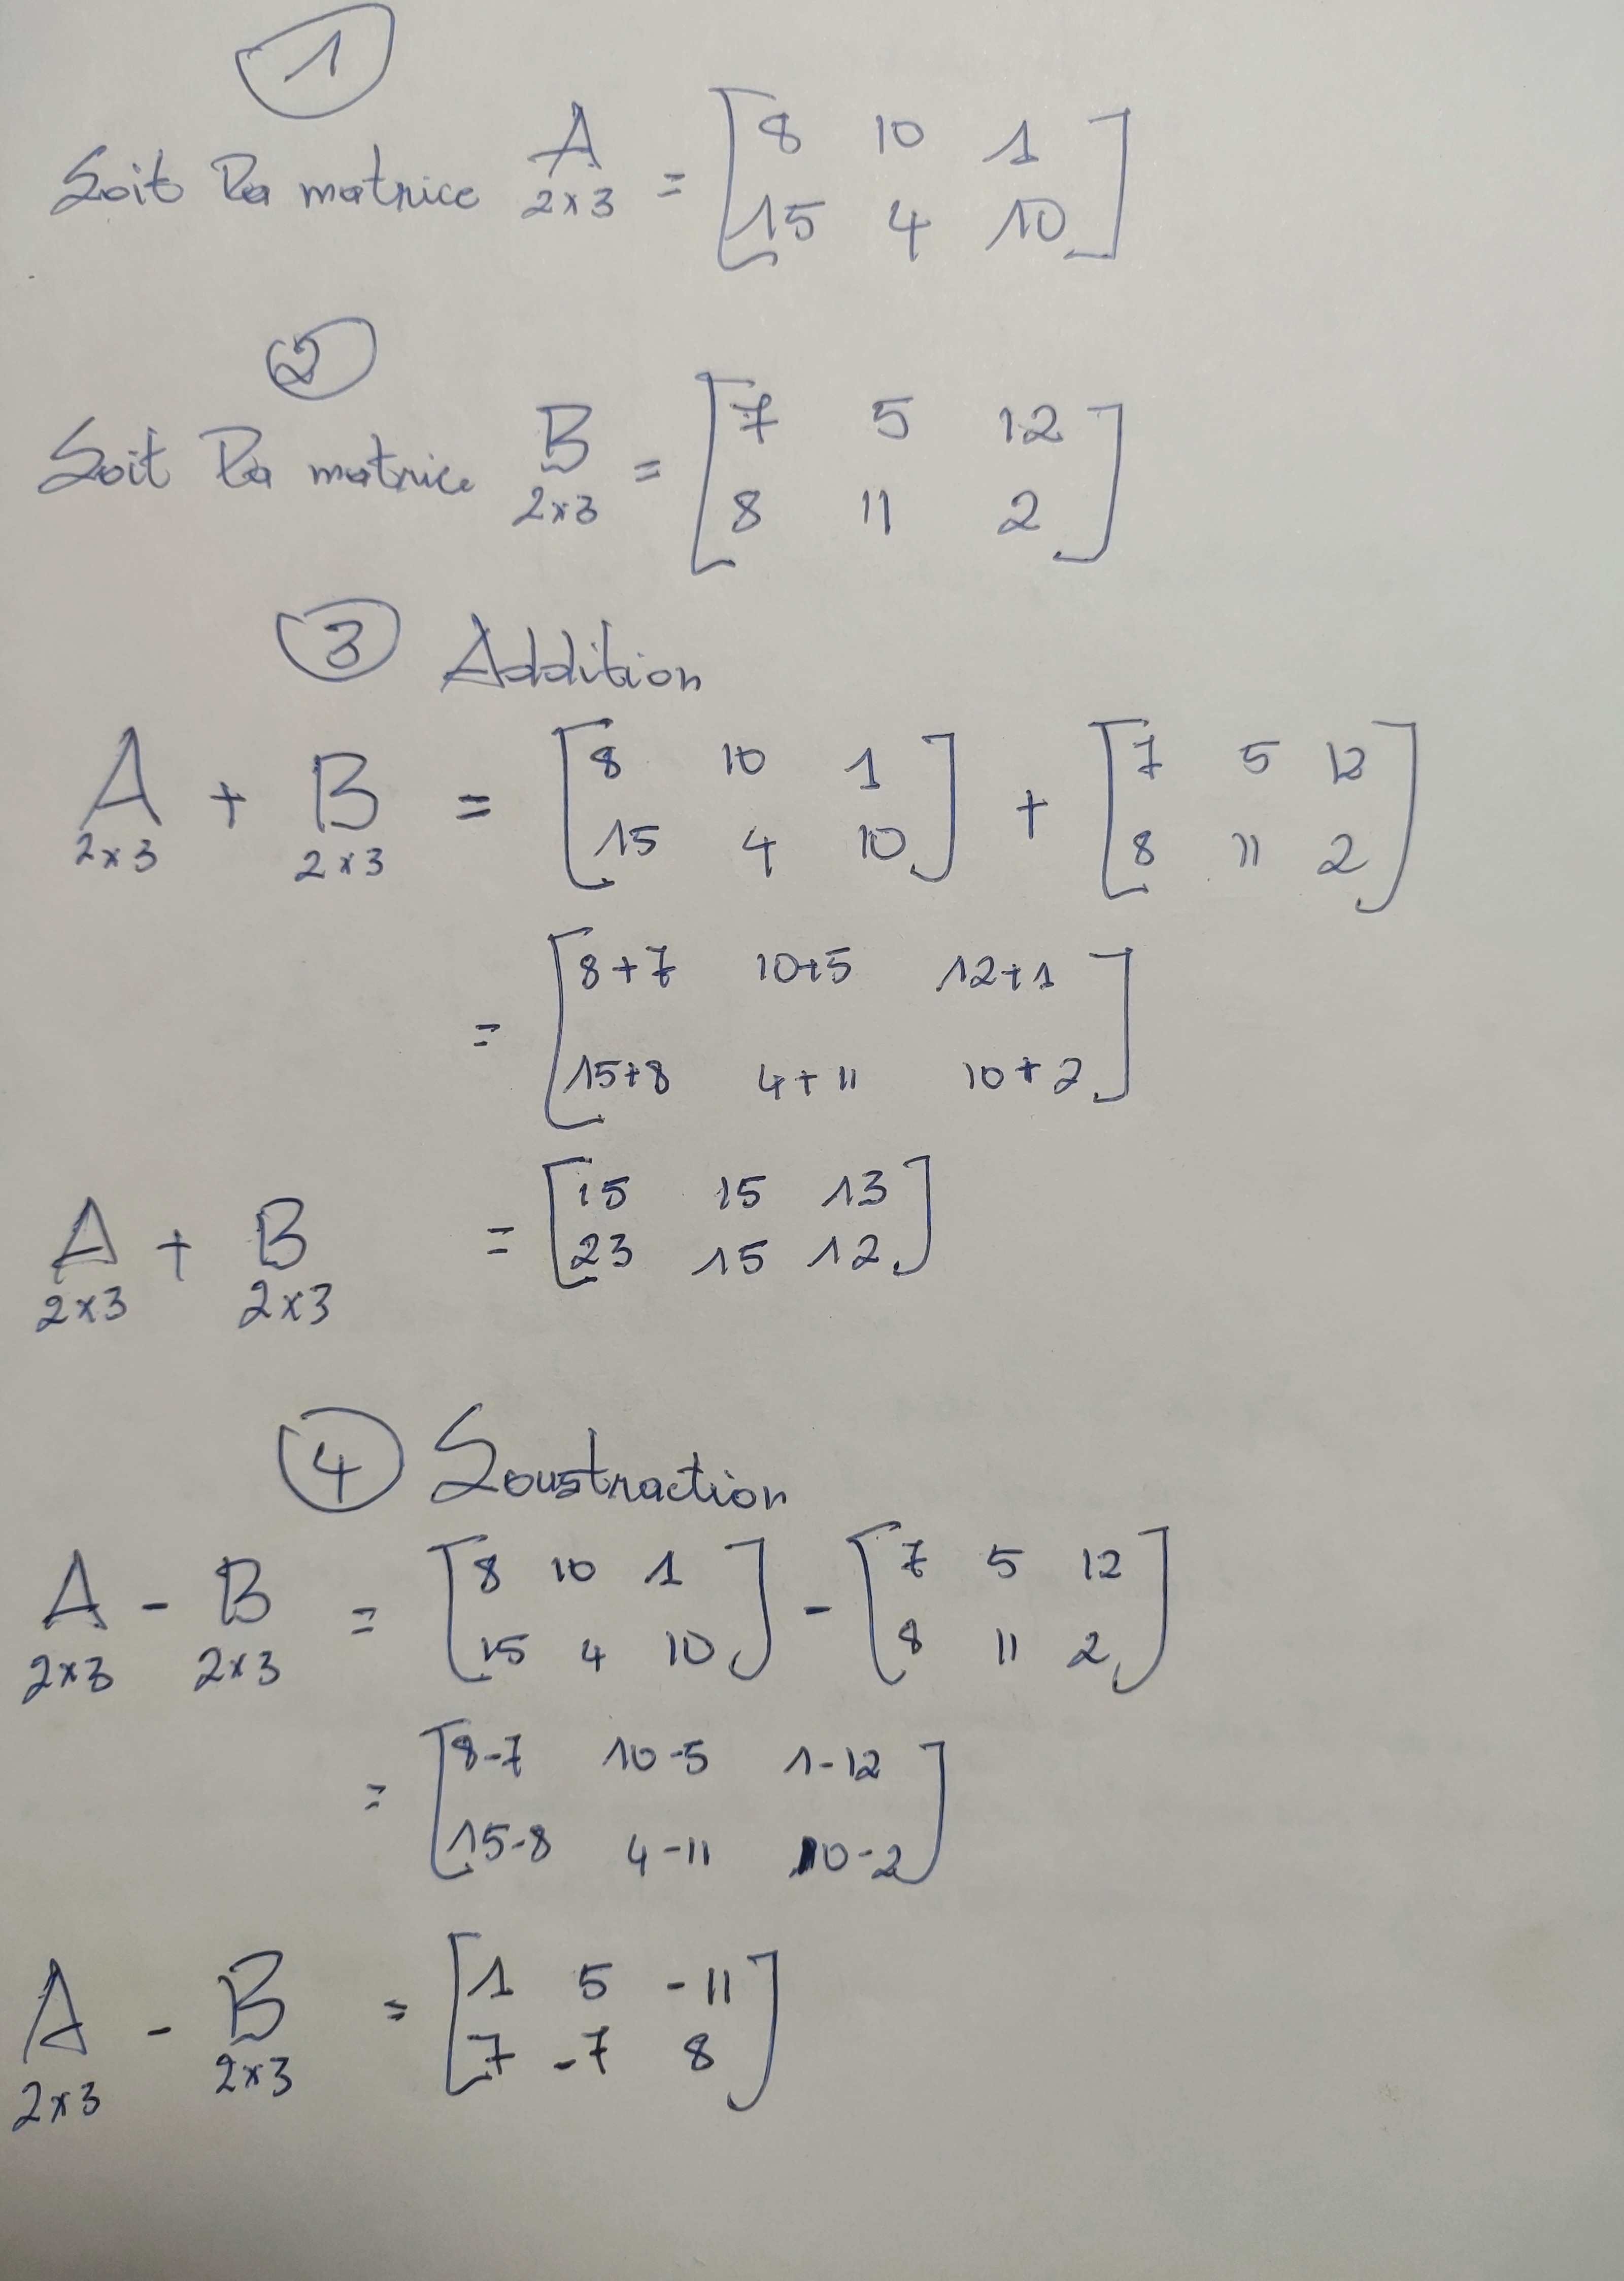 1
Soit la matrice A 2x3 = [8 10 1
15 4 10]
2
Soit la matrice B 2x3 = [7 5 12
8 11 2]
3 Addition
A 2x3 + B 2x3 = [8 10 1
15 4 10] + [7 5 12
8 11 2]
= [8+7 10+5 12+1
15+8 4+11 10+2]
A 2x3 + B 2x3 = [15 15 13
23 15 12]
4 Soustraction
A 2x3 - B 2x3 = [8 10 1
15 4 10] - [7 5 12
8 11 2]
= [8-7 10-5 1-12
15-8 4-11 10-2]
A 2x3 - B 2x3 = [1 5 -11
7 -7 8]